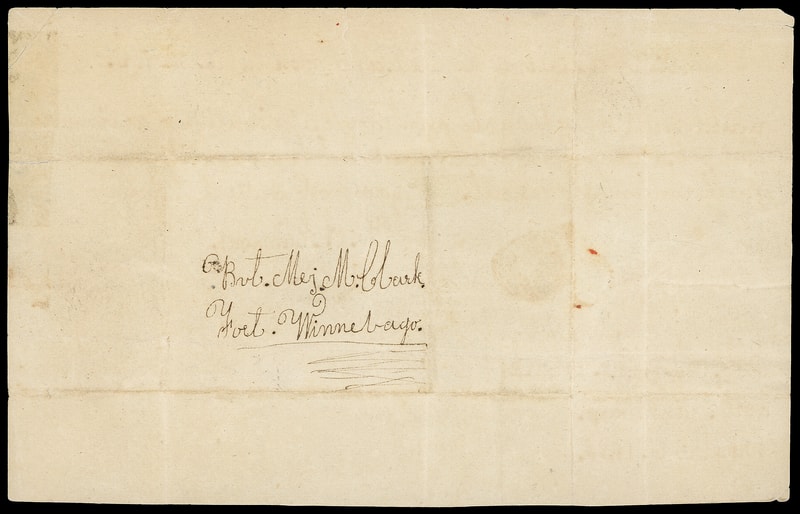 Bvt. Mej. M. Clark
Foet. Winnebago.